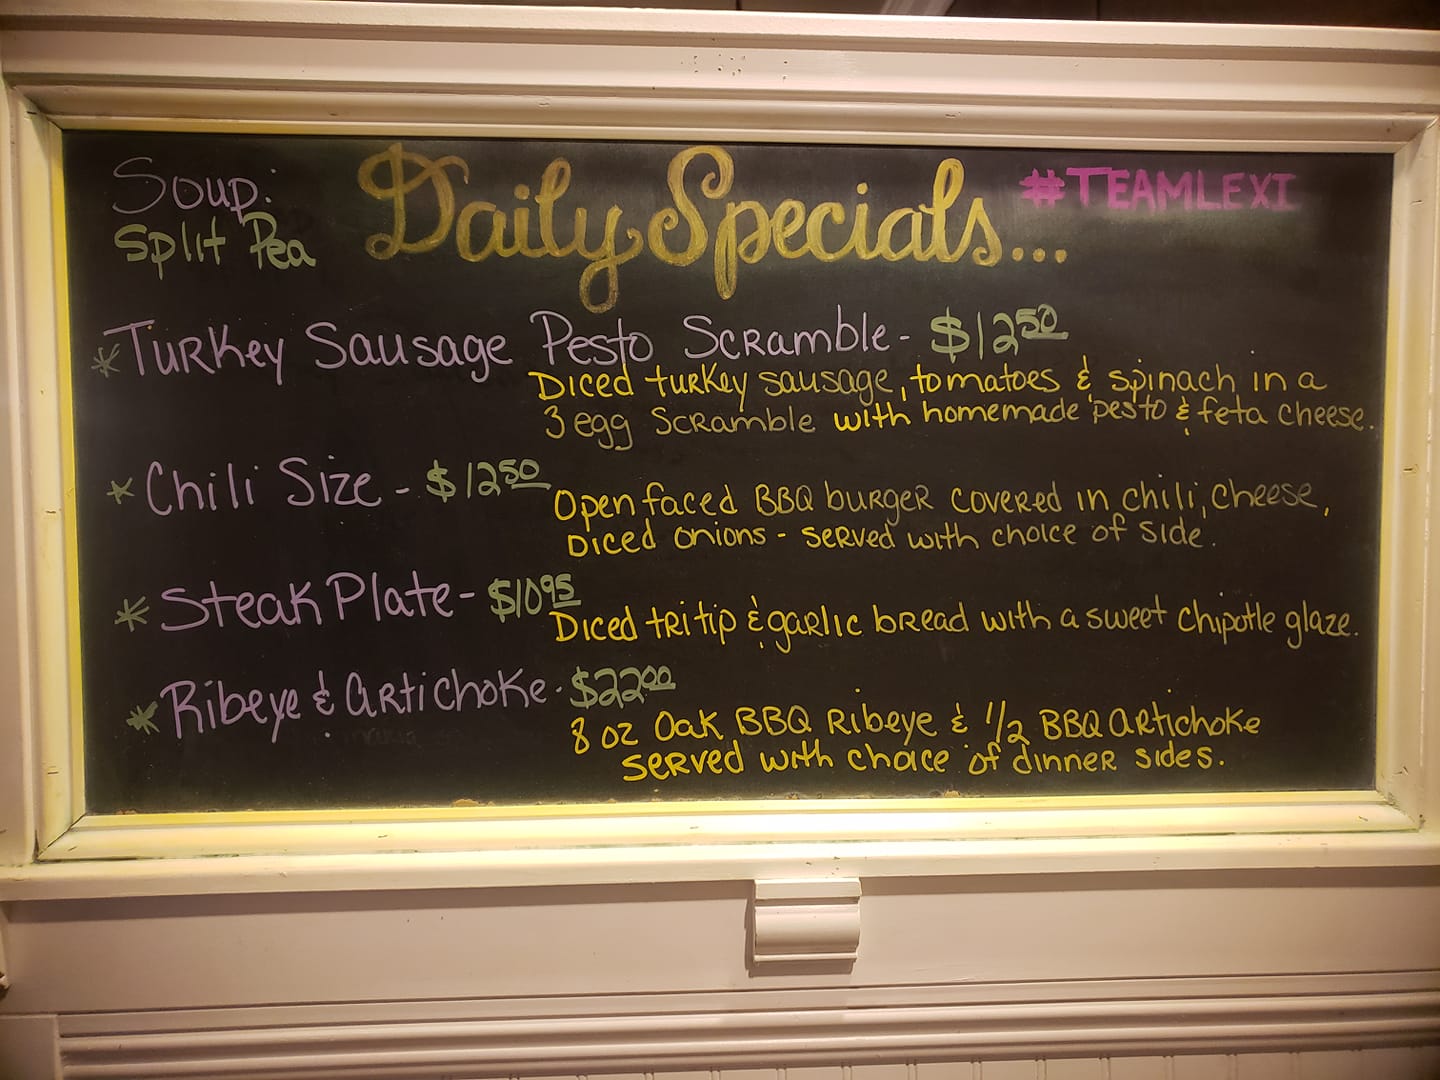 Soup:
Split Pea
Daily Specials...
#TEAMLEXI
* Turkey Sausage Pesto Scramble - $12.50
Diced turkey sausage, tomatoes & spinach in a
3 egg Scramble with homemade pesto & feta cheese.
* Chili Size - $12.50
Open faced BBQ burger covered in chili, cheese,
Diced onions - served with choice of side.
* Steak Plate - $10.95
Diced tri tip & garlic bread with a sweet chipotle glaze.
* Ribeye & Artichoke - $22.00
8 oz Oak BBQ Ribeye & 1/2 BBQ Artichoke
served with choice of dinner sides.